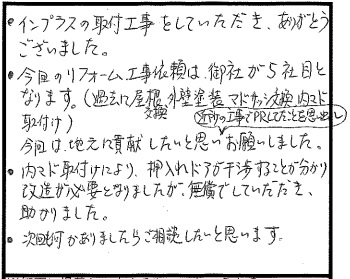 ・インプラスの取付工事をしていただき、ありがとう
ございました。
・今回のリフォーム工事依頼は、御社が5社目と
なります。(過去に屋根交換、外壁塗装、マドサッシ交換、内マド
取付け)
近所の工事でPRしてたことを思い出し
今回は、地元に貢献したいと思いお願いしました。
・内マド取付けにより、押入れドアが干渉することが分かり
改造が必要となりましたが、無償でしていただき、
助かりました。
・次回何かありましたらご相談したいと思います。